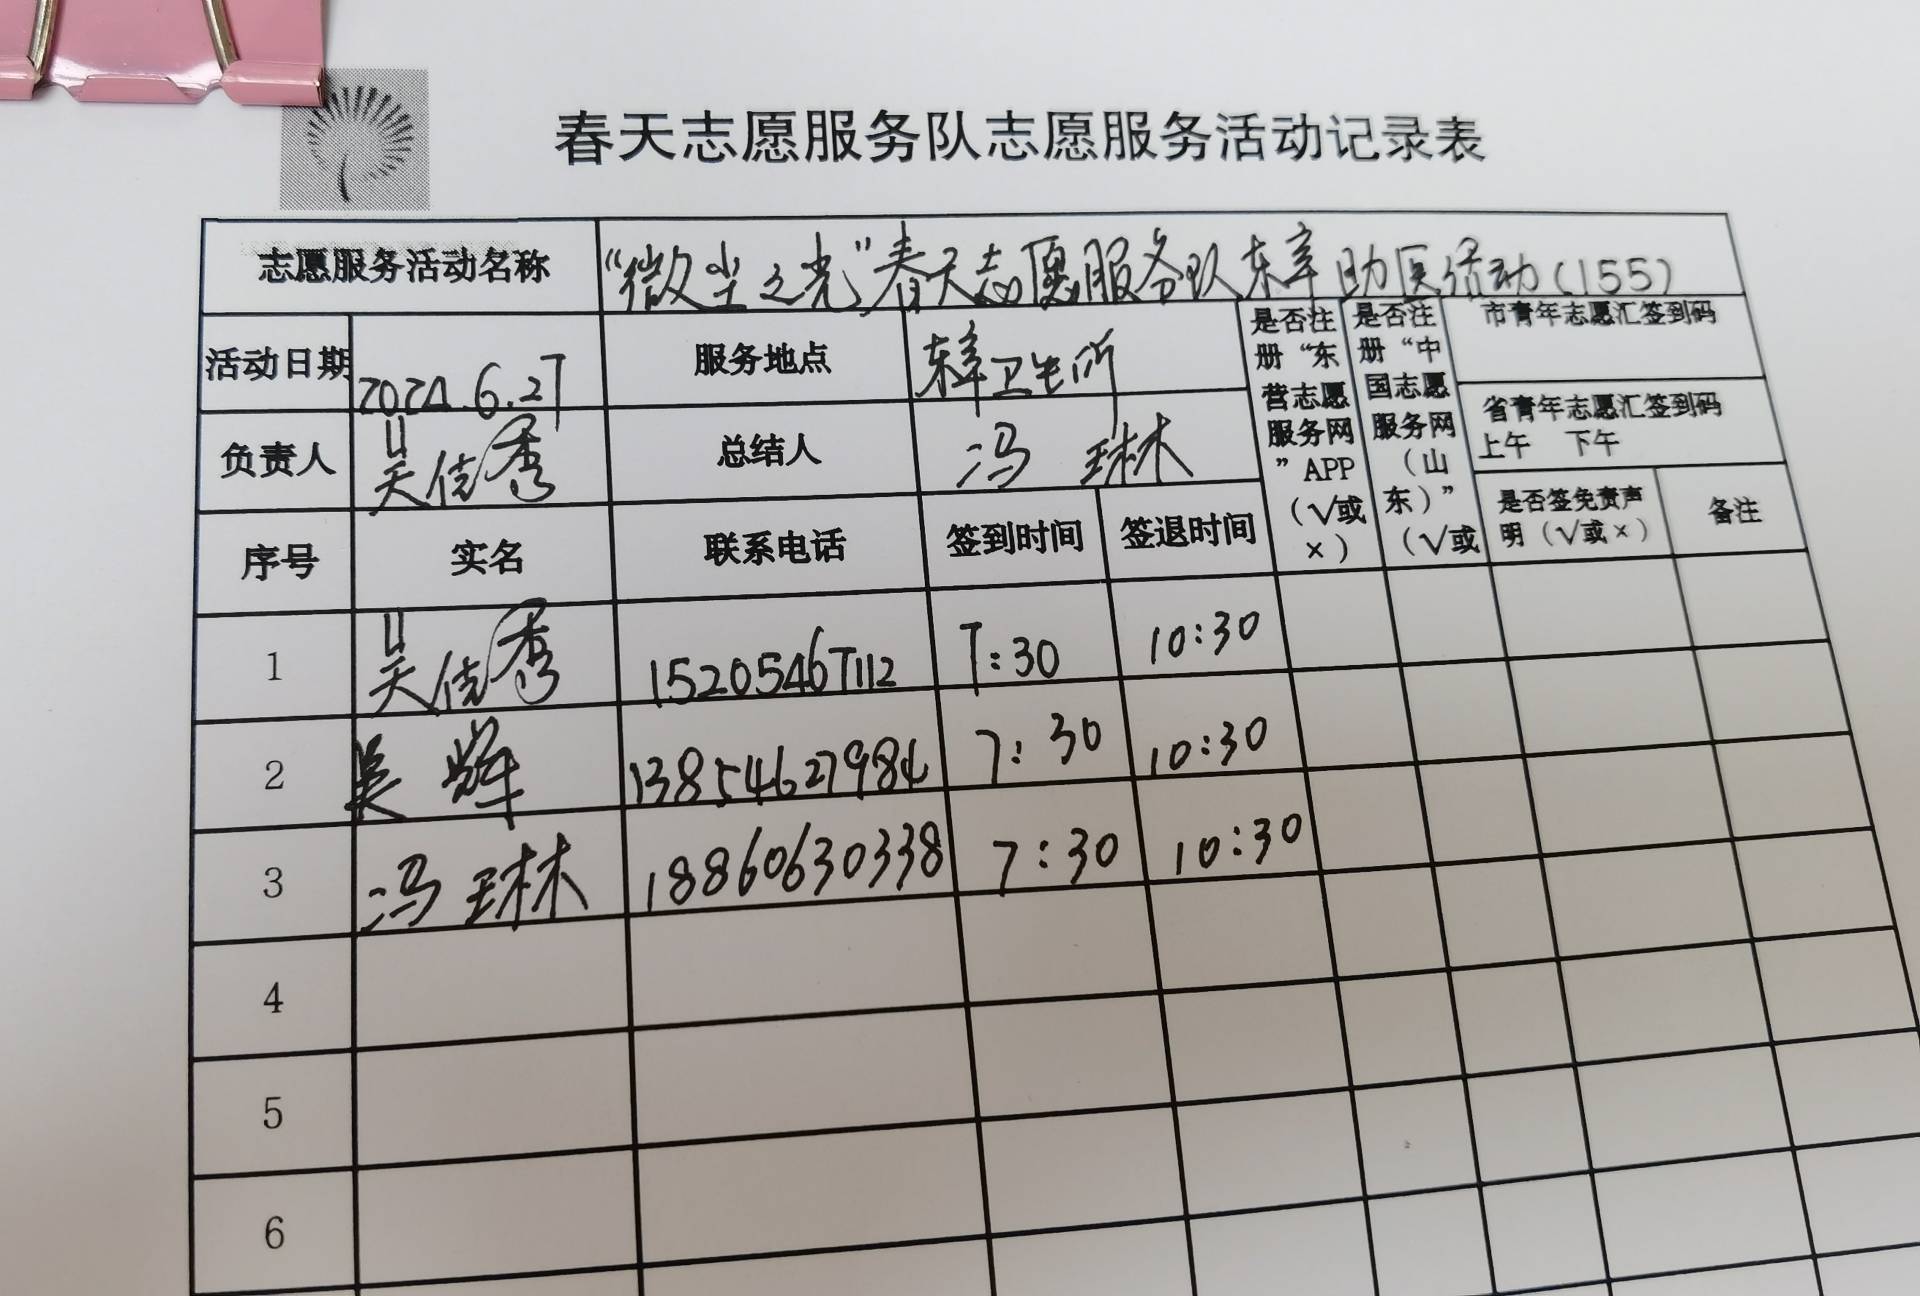 春天志愿服务队志愿服务活动记录表
志愿服务活动名称 “微尘之光”春天志愿服务队东辛助医活动(155)
活动日期 2024.6.27 服务地点 东辛卫生所
是否注册“东营志愿服务网”APP（√或×）
是否注册“中国志愿服务网（山东）”（√或
市青年志愿汇签到码
省青年志愿汇签到码
上午 下午
负责人 吴佳秀 总结人 冯琳
序号 实名 联系电话 签到时间 签退时间 是否签免责声明（√或×） 备注
1 吴佳秀 15205467112 7:30 10:30
2 吴辉 13854627984 7:30 10:30
3 冯琳 18860630338 7:30 10:30
4
5
6